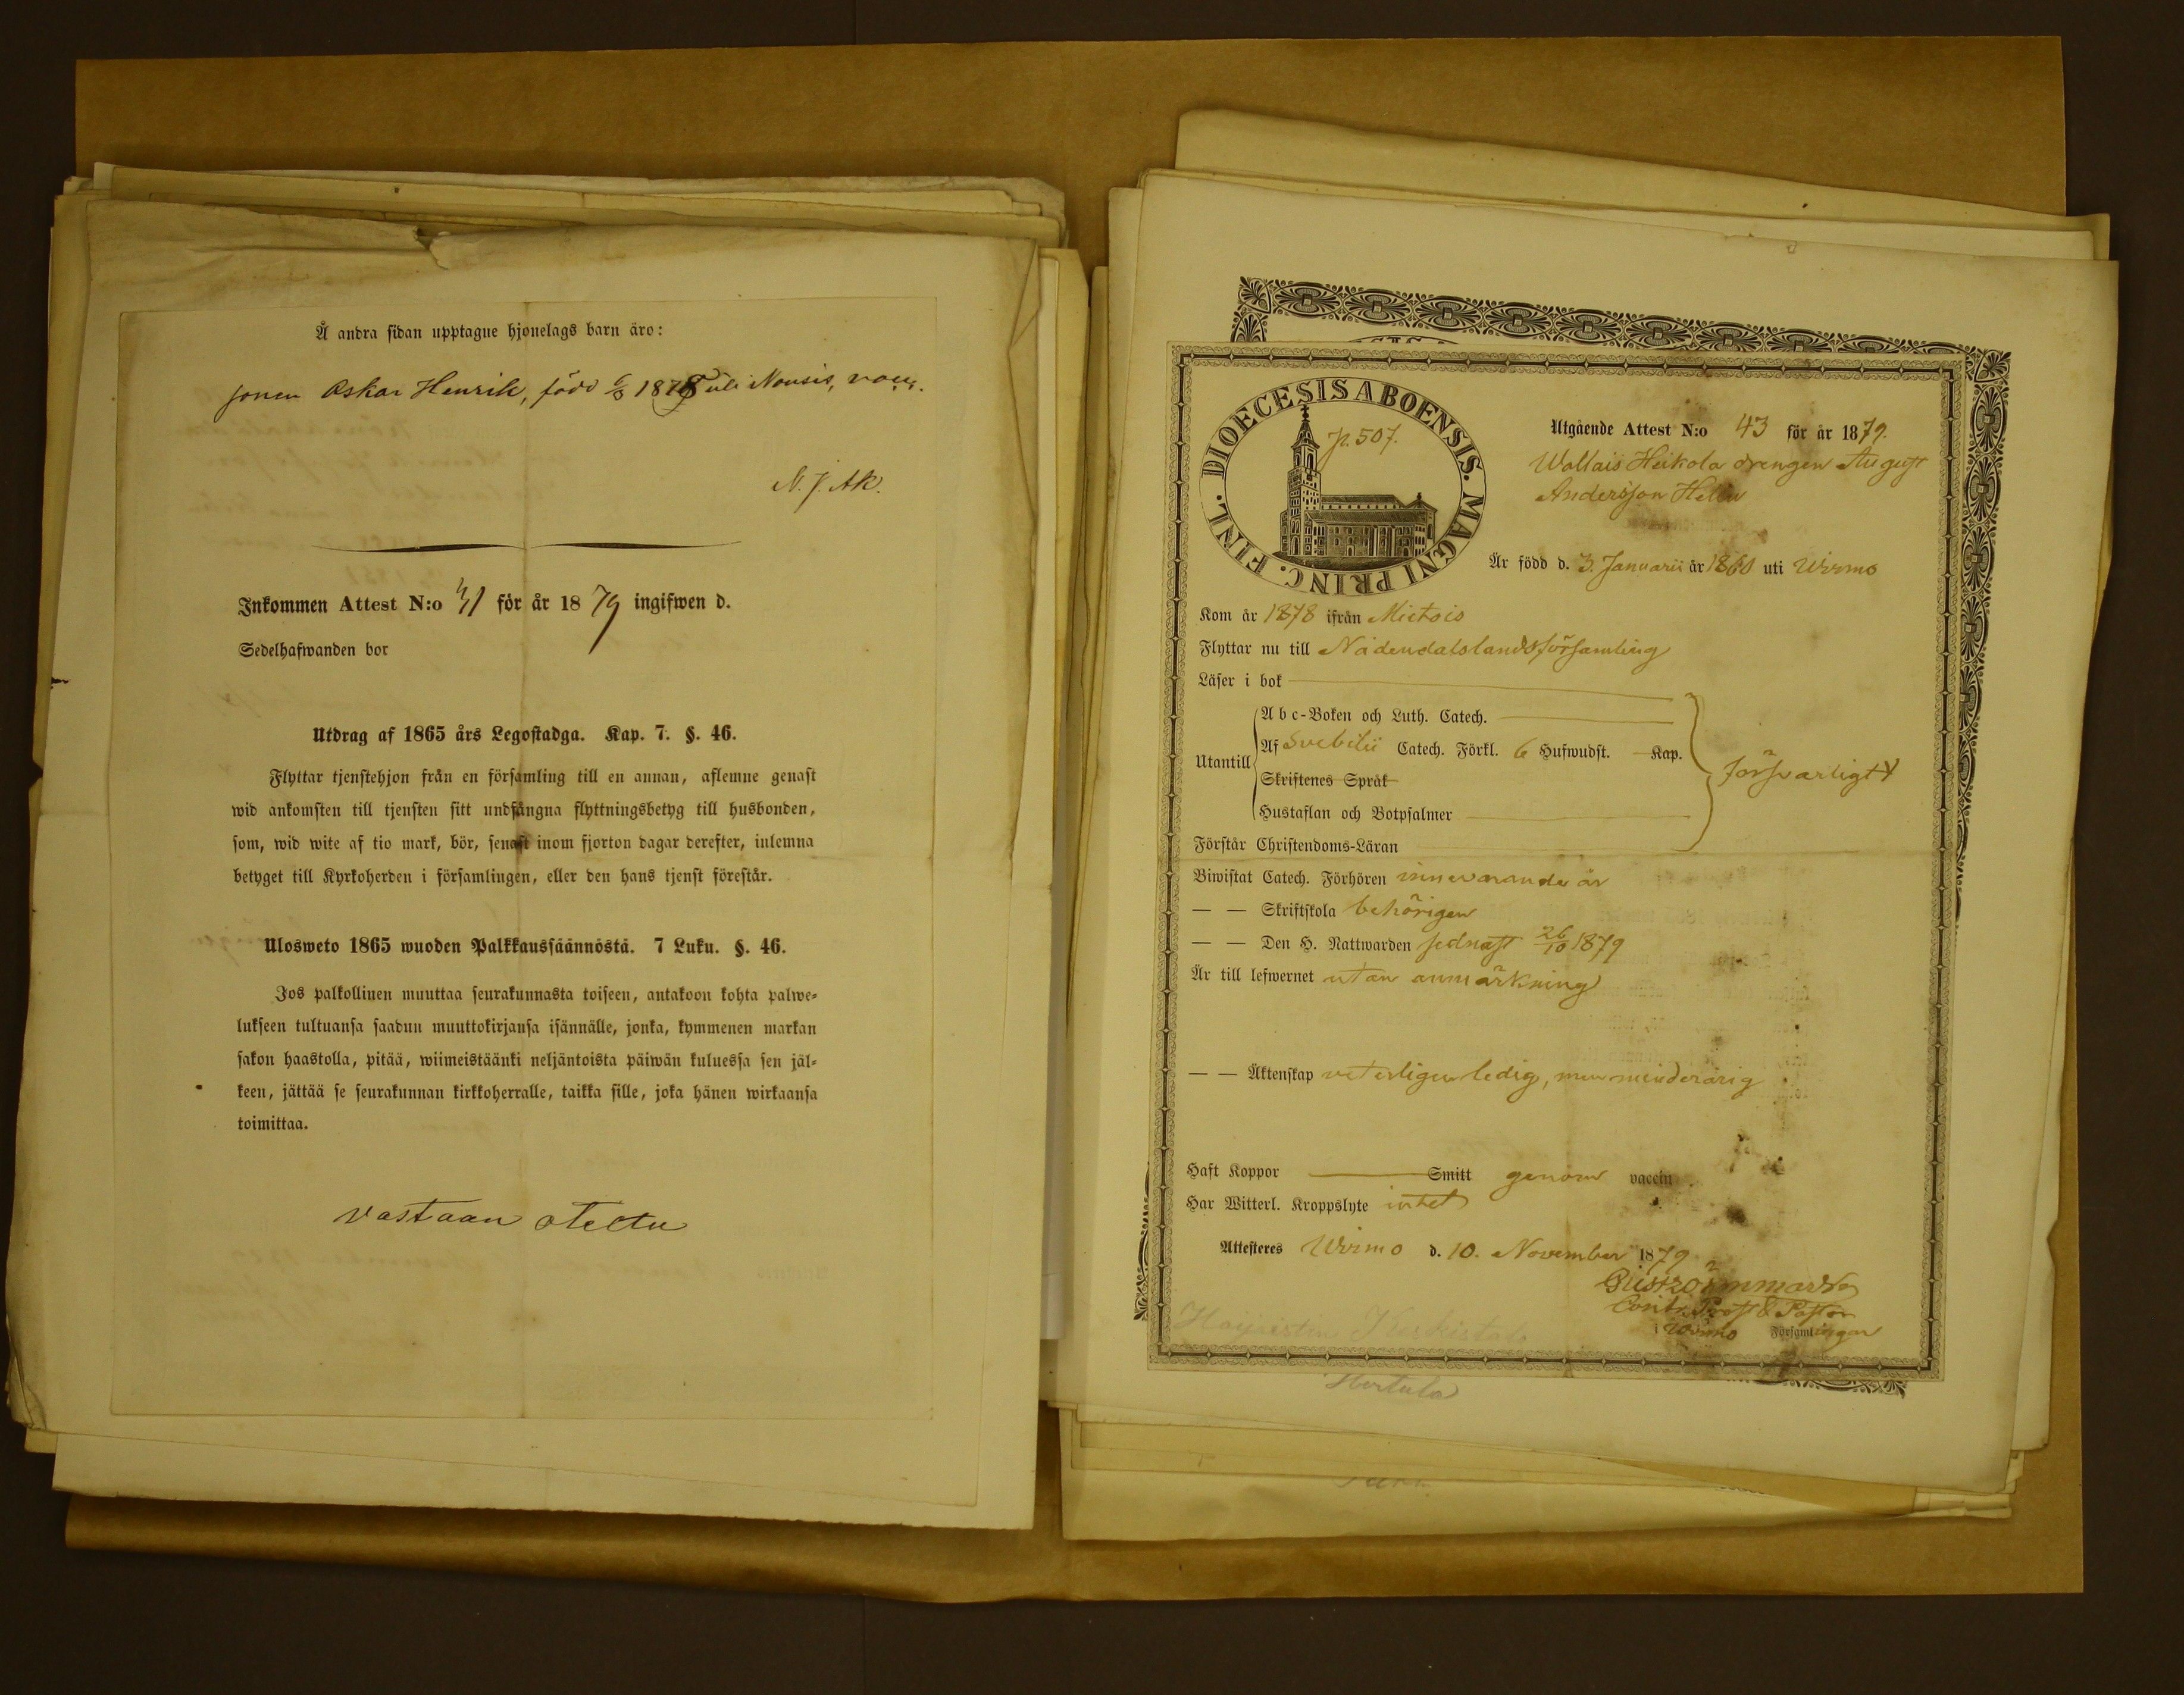 Å andra sidan upptagne hjonelags barn äro:
sonen Oskar Henrik, född 6/3 1878 uti Nousis, vacc.
N. J. Ak.
Inkommen Attest N:o 41 för år 1879 ingifwen d.
Sedelhafwanden bor
Utdrag af 1865 års Legostadga. Kap. 7. §. 46.
Flyttar tjenstehjon från en församling till en annan, aflemne genast
wid ankomsten till tjensten sitt undfångna flyttningsbetyg till husbonden,
som, wid wite af tio mark, bör, senast inom fjorton dagar derefter, inlemna
betyget till Kyrkoherden i församlingen, eller den hans tjenst förestår.
Ulosweto 1865 wuoden Palkkaussäännöstä. 7 Luku. §. 46.
Jos palkollinen muuttaa seurakunnasta toiseen, antakoon kohta palwe-
lukseen tultuansa saadun muuttokirjansa isännälle, jonka, kymmenen markan
sakon haastolla, pitää, wiimeistäänki neljäntoista päiwän kuluessa sen jäl-
keen, jättää se seurakunnan kirkkoherralle, taikka sille, joka hänen wirkaansa
toimittaa.
vastaan otettu
DIOECESIS ABOENSIS. MAGNI PRINC. FINL.
p. 507.
Utgående Attest N:o 43 för år 1879.
Wallais Heikola drengen August
Andersson Helin
Är född d. 3. Januarii år 1860 uti Wirmo
Kom år 1878 ifrån Mietois
Flyttar nu till Nådendals landsförsamling
Läser i bok
Utantill
A b c-Boken och Luth. Catech.
Af Svebilii Catech. Förkl. 6 Hufwudst. Kap.
Skriftenes Språk
Hustaflan och Botpsalmer
försvarligt
Förstår Christendoms-Läran
Biwistat Catech. Förhören innevarande år
— — Skriftskola behörigen
— — Den H. Nattwarden sednast 26/10 1879
Är till lefwernet utan anmärkning
— — Äktenskap veterligen ledig, men minderårig
Haft Koppor Smitt genom vaccin
Har Witterl. Kroppslyte intet
Attesteres Wirmo d. 10. November 1879
Contr. Prost & Pastor
i Wirmo Församlingar
Hertula